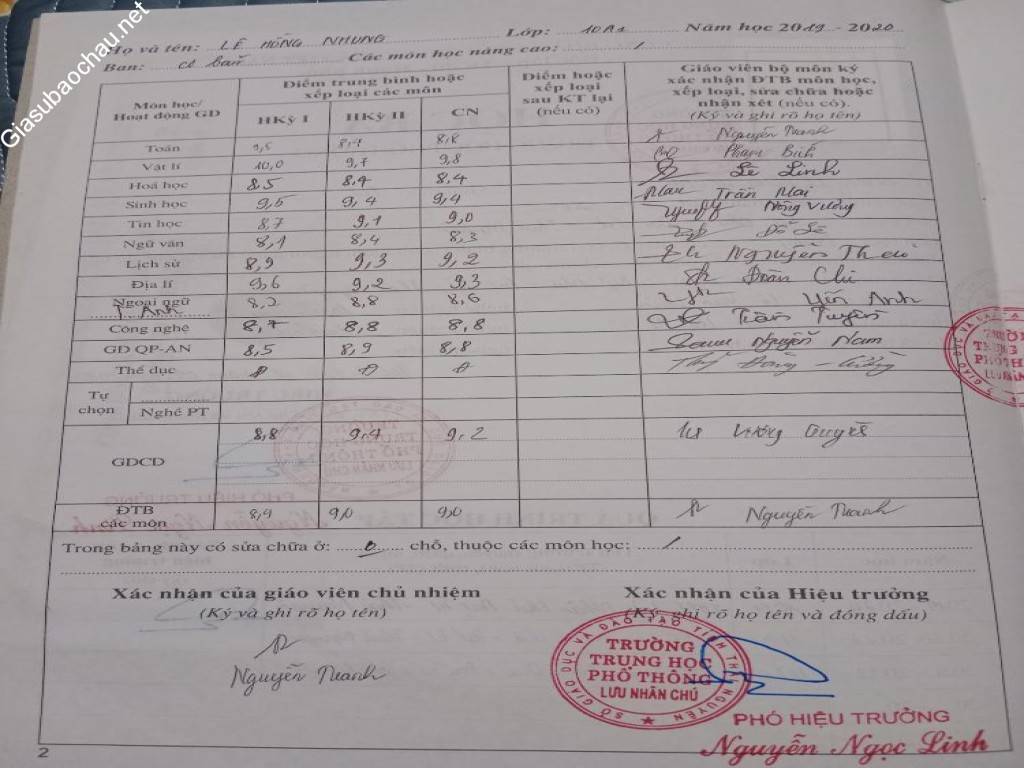 Giasubaochau.net
Họ và tên: LÊ HỒNG NHUNG Lớp: 10A1 Năm học 2019 - 2020
Ban: cơ bản Các môn học nâng cao: /
Môn học/ Hoạt động GD
Điểm trung bình hoặc xếp loại các môn
HKỳ I HKỳ II CN
Điểm hoặc xếp loại sau KT lại (nếu có)
Giáo viên bộ môn ký xác nhận ĐTB môn học, xếp loại, sửa chữa hoặc nhận xét (nếu có).
(Ký và ghi rõ họ tên)
Toán 9,5 8,8 Nguyễn Thanh
Vật lí 10,0 9,7 9,8 Phạm Bích
Hoá học 8,5 8,4 8,4 Lê Linh
Sinh học 9,5 9,4 9,4 Trần Mai
Tin học 8,7 9,1 9,0 Nông Vương
Ngữ văn 8,1 8,4 8,3 Đỗ
Lịch sử 8,9 9,3 9,2 Nguyễn
Địa lí 9,6 9,2 9,3 Đoàn Chi
Ngoại ngữ T. Anh 8,2 8,8 8,6 Yến Anh
Công nghệ 8,7 8,8 8,8 Trần
GD QP-AN 8,5 8,9 8,8 Nguyễn Nam
Thể dục Đ Đ Đ
Tự chọn
Nghề PT
GDCD 8,8 9,4 9,2 Vương
ĐTB các môn 8,9 9,0 9,0 Nguyễn Thanh
Trong bảng này có sửa chữa ở: 0 chỗ, thuộc các môn học: /
Xác nhận của giáo viên chủ nhiệm
(Ký và ghi rõ họ tên)
Nguyễn Thanh
Xác nhận của Hiệu trưởng
(Ký, ghi rõ họ tên và đóng dấu)
SỞ GIÁO DỤC VÀ ĐÀO TẠO TỈNH THÁI NGUYÊN
TRƯỜNG
TRUNG HỌC
PHỔ THÔNG
LƯU NHÂN CHÚ
PHÓ HIỆU TRƯỞNG
Nguyễn Ngọc Linh
2